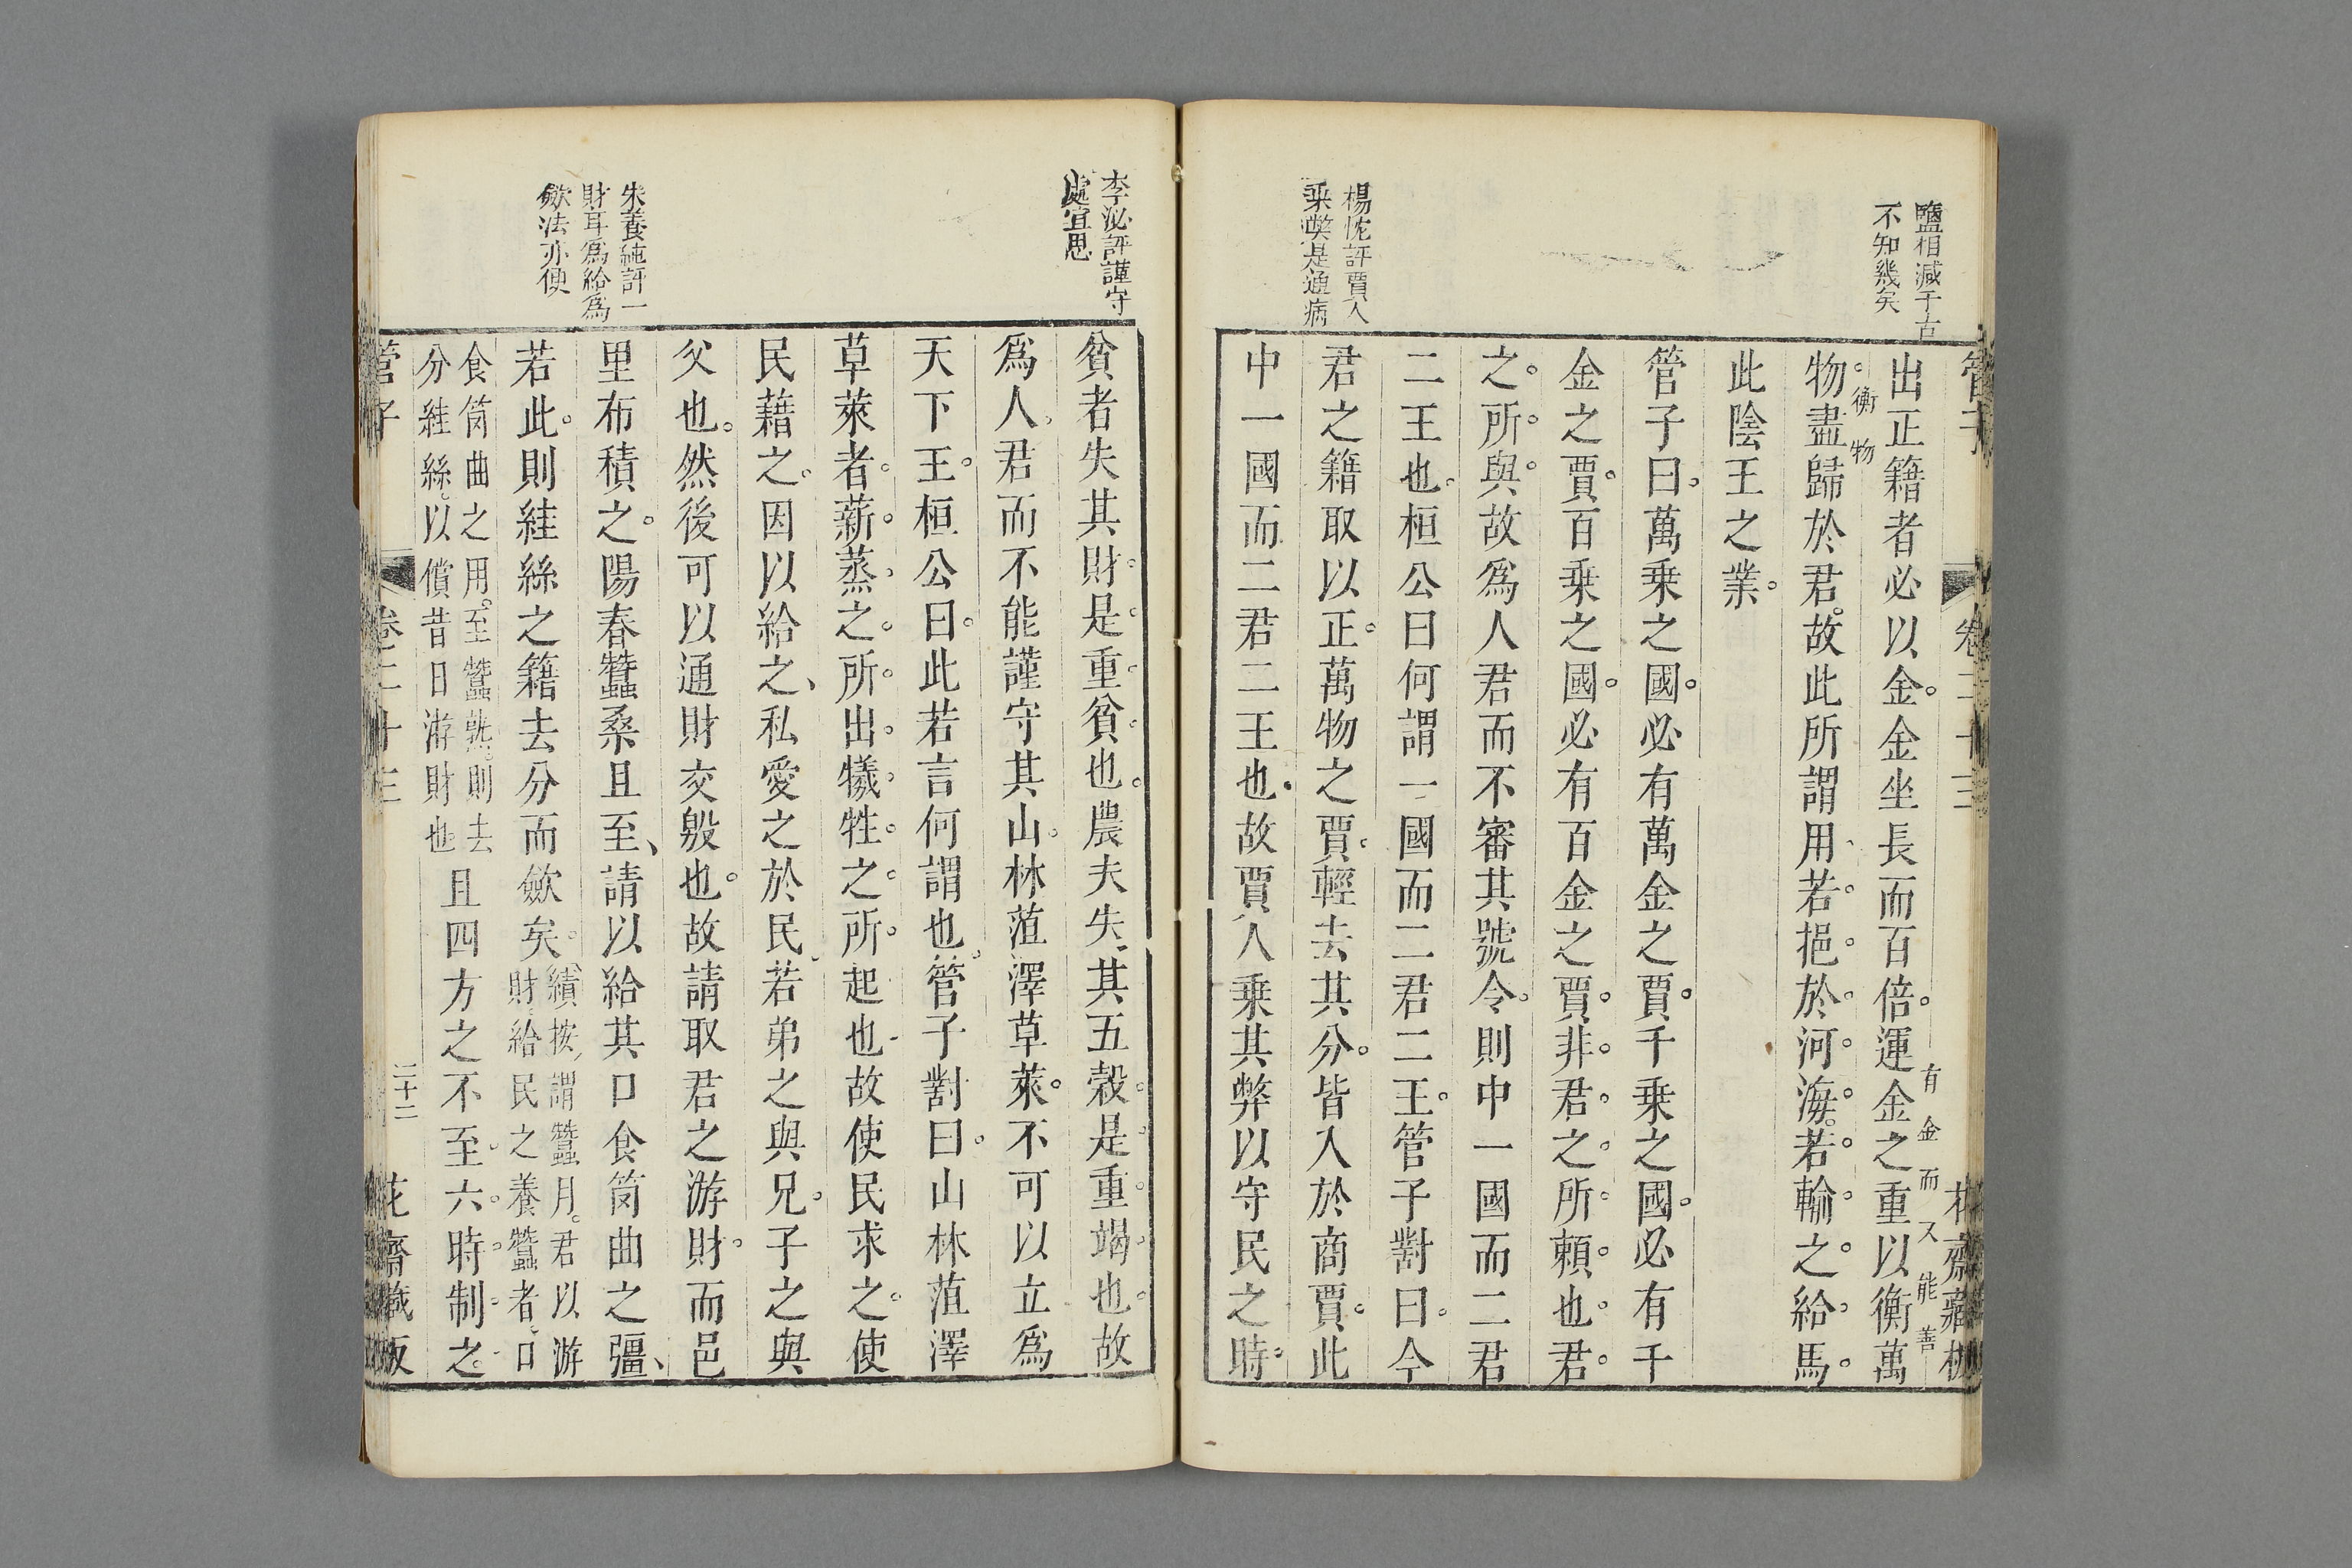 鹽相減于古
不知幾矣
楊忱評賈人
乘獘是通病
管子
卷二十三
出正籍者必以金金坐長而百倍運金之重以衡萬
有金而又能善
衡物
物盡歸於君故此所謂用若挹於河海若輸之給馬
此陰王之業
管子曰萬乘之國必有萬金之賈千乘之國必有千
金之賈百乘之國必有百金之賈非君之所賴也君
之所與故爲人君而不審其號令則中一國而二君
二王也桓公曰何謂一國而二君二王管子對曰今
君之籍取以正萬物之賈輕去其分皆入於商賈此
中一國而二君二王也故賈人乘其弊以守民之時
李泌評謹守
處宜思
朱養純評一
財耳爲給爲
歛法亦便
貧者失其財是重貧也農夫失其五穀是重竭也故
爲人君而不能謹守其山林菹澤草萊不可以立爲
天下王桓公曰此若言何謂也管子對曰山林菹澤
草萊者薪蒸之所出犧牲之所起也故使民求之使
民藉之因以給之私愛之於民若弟之與兄子之與
父也然後可以通財交殷也故請取君之游財而邑
里布積之陽春蠶桑且至請以給其口食筥曲之彊
若此則絓絲之籍去分而歛矣
續按謂蠶月君以游
財給民之養蠶者口
食筥曲之用至蠶熟則去
分絓絲以償昔日游財也
且四方之不至六時制之
管子
卷二十三
二十二
花齋藏板